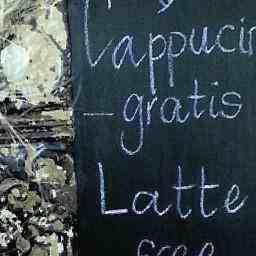 Cappucin
– gratis
Latte
free